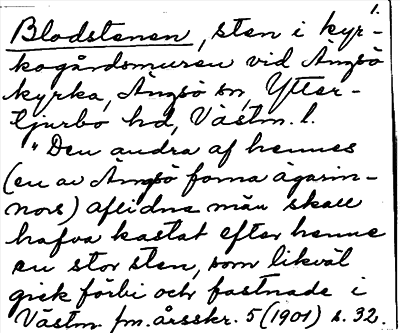 1.
Blodstenen, sten i kyr-
kogårdsmuren vid Ängsö
kyrka, Ängsö sn, Ytter-
tjurbo hd, Västm. l.
"Den andra af hennes
(en av Ängsö forna ägarin-
nors) aflidne män skall
hafva kastat efter henne
en stor sten, som likväl
gick förbi och fastnade i
Västm. fm. årsskr. 5 (1901) s. 32.